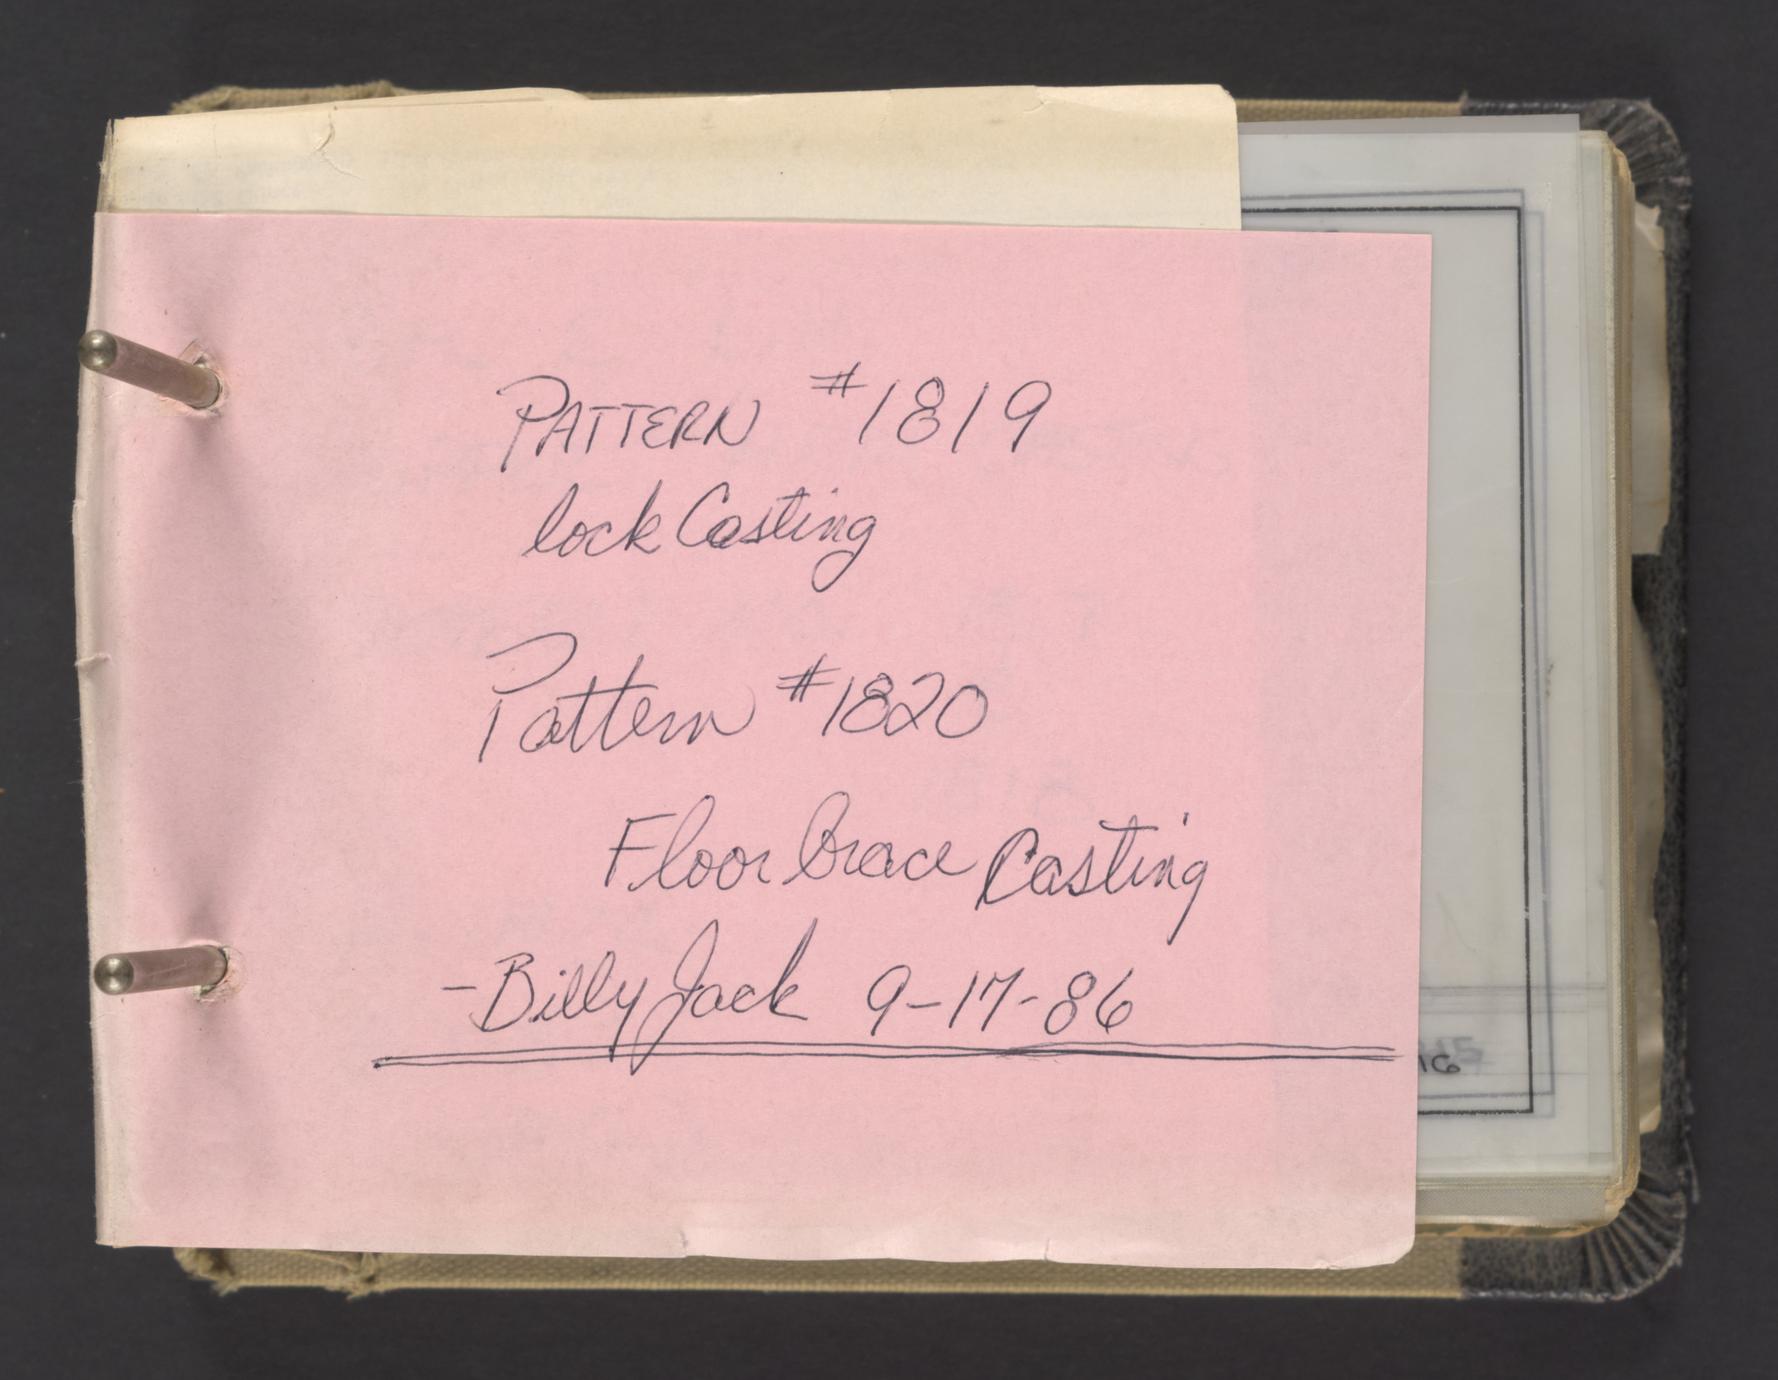 PATTERN #1819
lock Casting
Pattern #1820
Floor brace Casting
- Billy Jack 9-17-86